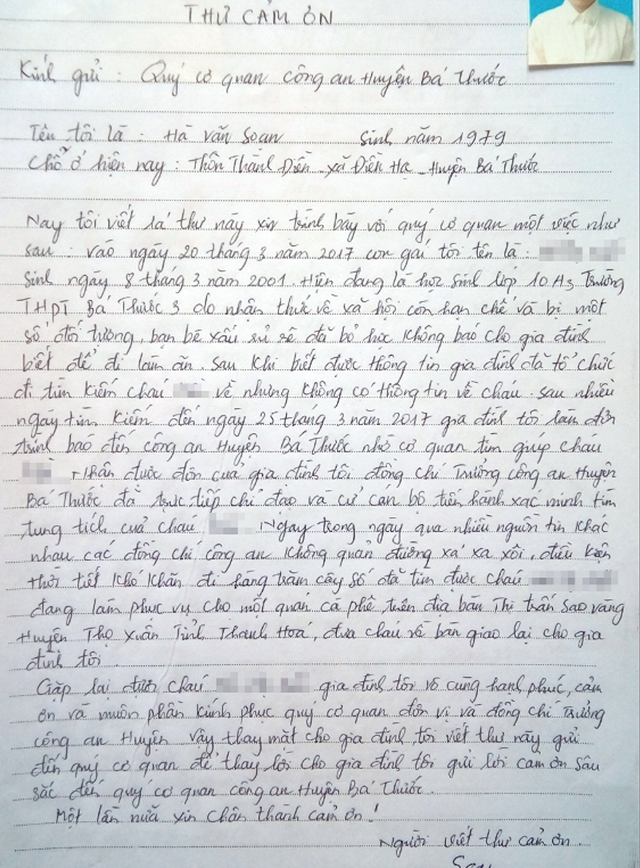 THƯ CẢM ƠN
Kính gửi : Quý cơ quan công an Huyện Bá Thước
Tên tôi là : Hà Văn Soan Sinh năm 1979
Chỗ ở hiện nay : Thôn Thành Điền - xã Điền Hạ - Huyện Bá Thước
Nay tôi viết lá thư này xin trình bày với quý cơ quan một việc như
sau : vào ngày 20 tháng 3 năm 2017 con gái tôi tên là :
Sinh ngày 8 tháng 3 năm 2001. Hiện đang là học sinh lớp 10A3 Trường
THPT Bá Thước 3 do nhận thức về xã hội còn hạn chế và bị một
số đối tượng, bạn bè xấu rủ rê đã bỏ học không báo cho gia đình
biết để đi làm ăn. sau khi biết được thông tin gia đình đã tổ chức
đi tìm kiếm cháu về nhưng không có thông tin về cháu. sau nhiều
ngày tìm kiếm đến ngày 25 tháng 3 năm 2017 gia đình tôi làm đơn
trình báo đến công an Huyện Bá Thước nhờ cơ quan tìm giúp cháu
. Nhận được đơn của gia đình tôi đồng chí Trưởng công an Huyện
Bá Thước đã trực tiếp chỉ đạo và cử cán bộ tiến hành xác minh tìm
tung tích của cháu . Ngay trong ngày qua nhiều nguồn tin khác
nhau các đồng chí công an không quản đường xá xa xôi, điều kiện
thời tiết khó khăn đi hàng trăm cây số đã tìm được cháu
đang làm phục vụ cho một quán cà phê trên địa bàn Thị trấn sao vàng
Huyện Thọ Xuân Tỉnh Thanh Hoá, đưa cháu về bàn giao lại cho gia
đình tôi.
Gặp lại được cháu gia đình tôi vô cùng hạnh phúc, cảm
ơn và muôn phần kính phục quý cơ quan đơn vị và đồng chí Trưởng
công an Huyện vậy thay mặt cho gia đình, tôi viết thư này gửi
đến quý cơ quan để thay lời cho gia đình tôi gửi lời cảm ơn sâu
sắc đến quý cơ quan công an Huyện Bá Thước.
Một lần nữa xin chân thành cảm ơn!
Người viết thư cảm ơn.